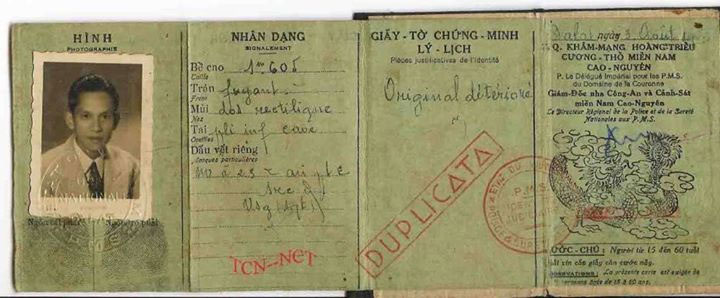 HÌNH
PHOTOGRAPHIE
NHÂN DẠNG
SIGNALEMENT
Bề cao 1m605
Taille
Trán fuyant
Front
Mũi dos rectiligne
Nez
Tai pli inf cave
Oreilles
Dấu vết riêng
Marques particulières
TCN--NCT
GIẤY-TỜ CHỨNG-MINH
LÝ-LỊCH
Pièces justificatives de l'identité
Original détérioré
DUPLICATA
Dalat, ngày 3 Août
Q. KHÂM-MẠNG HOÀNG-TRIỀU
CƯƠNG-THỔ MIỀN NAM
CAO-NGUYÊN
P. Le Délégué Impérial pour les P.M.S.
du Domaine de la Couronne
Giám-Đốc nha Công-An và Cảnh-Sát
miền Nam Cao-Nguyên
Le Directeur Régional de la Police et de la Sureté
Nationales aux P.M.S.
P.M.S.
ƯỚC-CHÚ: Người từ 15 đến 60 tuổi
xin cấp giấy căn cước này.
OBSERVATIONS: La présente carte est exigée de
personne âgée de 15 à 60 ans.